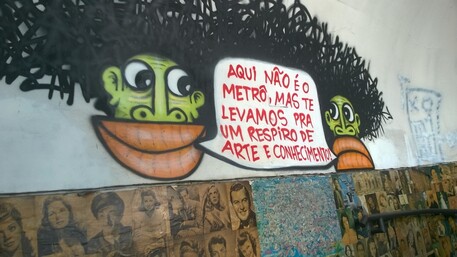 AQUI NÃO É O
METRÔ, MAS TE
LEVAMOS PRA
UM RESPIRO DE
ARTE E CONHECIMENTO!